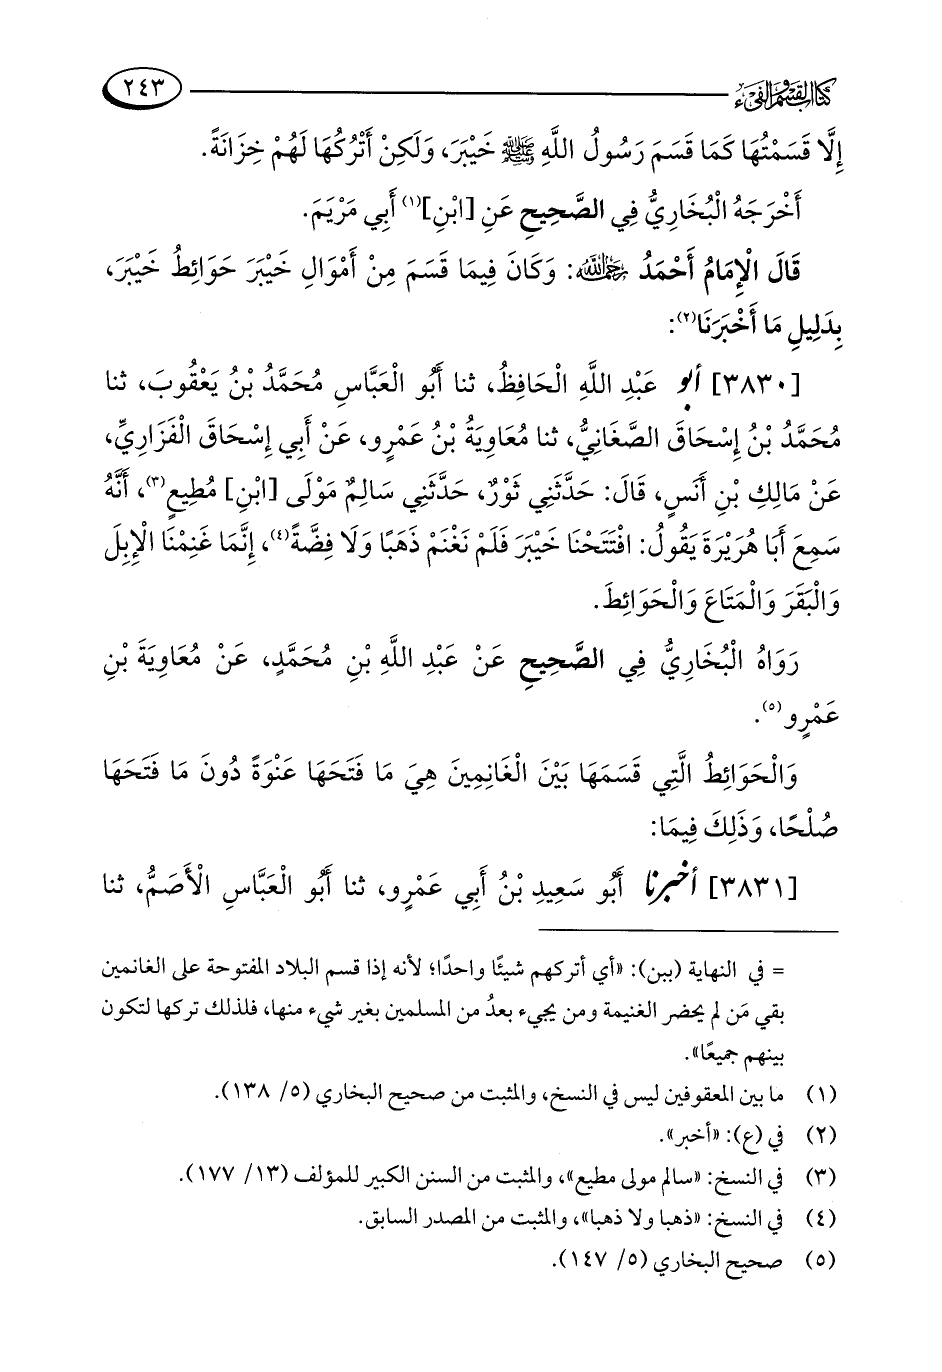 كتاب القسم والفيء
٢٤٣
إِلَّا قَسَمْتُهَا كَمَا قَسَمَ رَسُولُ اللَّهِ ﷺ خَيْبَرَ، وَلَكِنْ أَتْرُكُهَا لَهُمْ خِزَانَةً.
أَخْرَجَهُ الْبُخَارِيُّ فِي الصَّحِيحِ عَنِ [ابْنِ]⁽١⁾ أَبِي مَرْيَمَ.
قَالَ الْإِمَامُ أَحْمَدُ رحمه الله: وَكَانَ فِيمَا قَسَمَ مِنْ أَمْوَالِ خَيْبَرَ حَوَائِطُ خَيْبَرَ،
بِدَلِيلِ مَا أَخْبَرَنَا⁽٢⁾:
[٣٨٣٠] أبو عَبْدِ اللَّهِ الْحَافِظُ، ثنا أَبُو الْعَبَّاسِ مُحَمَّدُ بْنُ يَعْقُوبَ، ثنا
مُحَمَّدُ بْنُ إِسْحَاقَ الصَّغَانِيُّ، ثنا مُعَاوِيَةُ بْنُ عَمْرٍو، عَنْ أَبِي إِسْحَاقَ الْفَزَارِيِّ،
عَنْ مَالِكِ بْنِ أَنَسٍ، قَالَ: حَدَّثَنِي ثَوْرٌ، حَدَّثَنِي سَالِمٌ مَوْلَى [ابْنِ] مُطِيعٍ⁽٣⁾، أَنَّهُ
سَمِعَ أَبَا هُرَيْرَةَ يَقُولُ: افْتَتَحْنَا خَيْبَرَ فَلَمْ نَغْنَمْ ذَهَبًا وَلَا فِضَّةً⁽٤⁾، إِنَّمَا غَنِمْنَا الْإِبِلَ
وَالْبَقَرَ وَالْمَتَاعَ وَالْحَوَائِطَ.
رَوَاهُ الْبُخَارِيُّ فِي الصَّحِيحِ عَنْ عَبْدِ اللَّهِ بْنِ مُحَمَّدٍ، عَنْ مُعَاوِيَةَ بْنِ
عَمْرٍو⁽٥⁾.
وَالْحَوَائِطُ الَّتِي قَسَمَهَا بَيْنَ الْغَانِمِينَ هِيَ مَا فَتَحَهَا عَنْوَةً دُونَ مَا فَتَحَهَا
صُلْحًا، وَذَلِكَ فِيمَا:
[٣٨٣١] أخبرنا أَبُو سَعِيدِ بْنُ أَبِي عَمْرٍو، ثنا أَبُو الْعَبَّاسِ الْأَصَمُّ، ثنا
= في النهاية (ببن): «أي أتركهم شيئًا واحدًا؛ لأنه إذا قسم البلاد المفتوحة على الغانمين
بقي مَن لم يحضر الغنيمة ومن يجيء بعدُ من المسلمين بغير شيء منها، فلذلك تركها لتكون
بينهم جميعًا».
(١) ما بين المعقوفين ليس في النسخ، والمثبت من صحيح البخاري (٥/ ١٣٨).
(٢) في (ع): «أخبر».
(٣) في النسخ: «سالم مولى مطيع»، والمثبت من السنن الكبير للمؤلف (١٣/ ١٧٧).
(٤) في النسخ: «ذهبا ولا ذهبا»، والمثبت من المصدر السابق.
(٥) صحيح البخاري (٥/ ١٤٧).